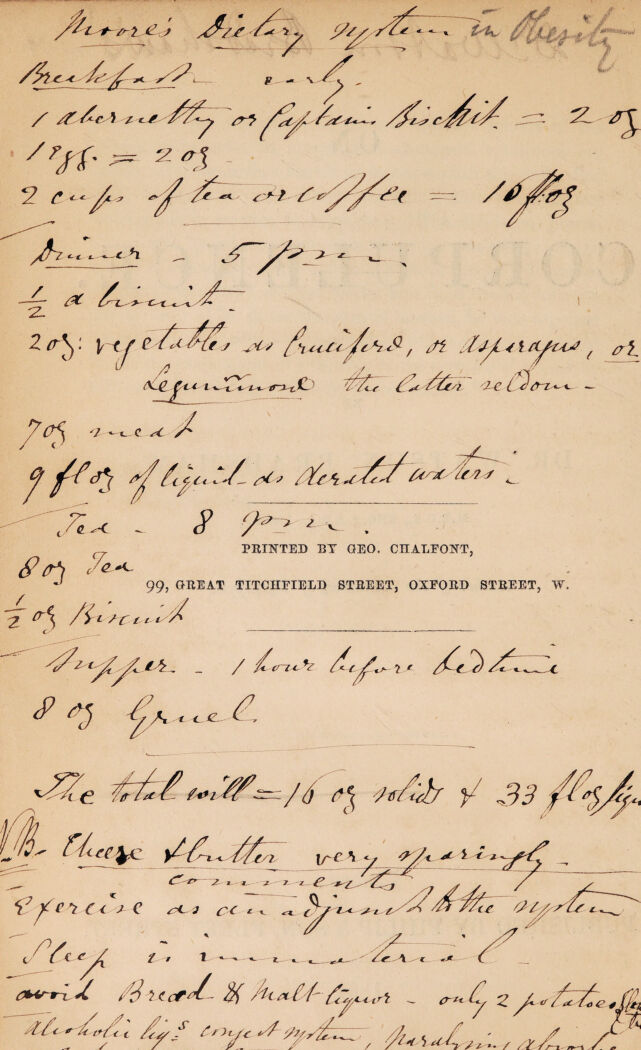 Moore's Dietary system in Obesity
Breakfast early.
1 abernethy or Captains Biscuit. = 2 oz
1 egg. = 2 oz
2 cups of tea or coffee = 16 fl oz
Dinner - 5 pm.
½ a biscuit.
2 oz: vegetables as Cruciferæ, or asparagus, or
Leguminosæ the latter seldom -
7 oz meat
9 fl oz of liquid - as aerated waters.
Tea - 8 pm.
PRINTED BY GEO. CHALFONT,
8 oz Tea
99, GREAT TITCHFIELD STREET, OXFORD STREET, W.
½ oz Biscuit
Supper - 1 hour before bedtime
8 oz Gruel
The total will = 16 oz solids & 33 fl oz
N.B. Cheese & butter very sparingly -
comments
Exercise as an adjunct to the system
Sleep is immaterial
avoid Bread & Malt liquor - only 2 potatoes
alcoholic liqs. congest system,